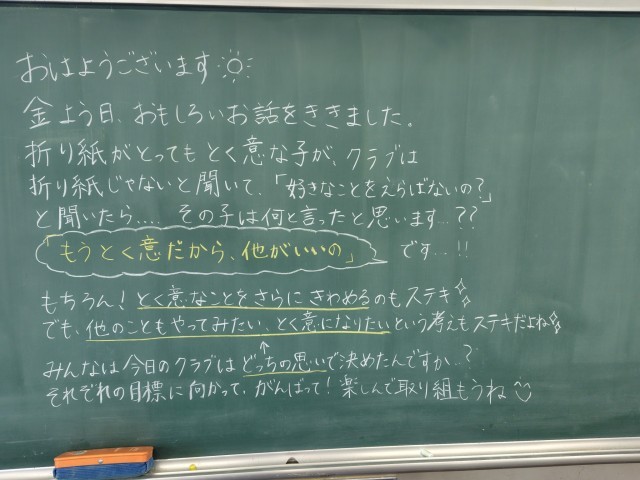 おはようございます
金よう日、おもしろいお話をききました。
折り紙がとってもとく意な子が、クラブは
折り紙じゃないと聞いて、「好きなことをえらばないの?」
と聞いたら.... その子は何と言ったと思います...??
「もうとく意だから、他がいいの」 です...!!
もちろん!とく意なことをさらにきわめるのもステキ
でも、他のこともやってみたい、とく意になりたいという考えもステキだよね
みんなは今日のクラブはどっちの思いで決めたんですか..?
それぞれの目標に向かって、がんばって!楽しんで取り組もうね